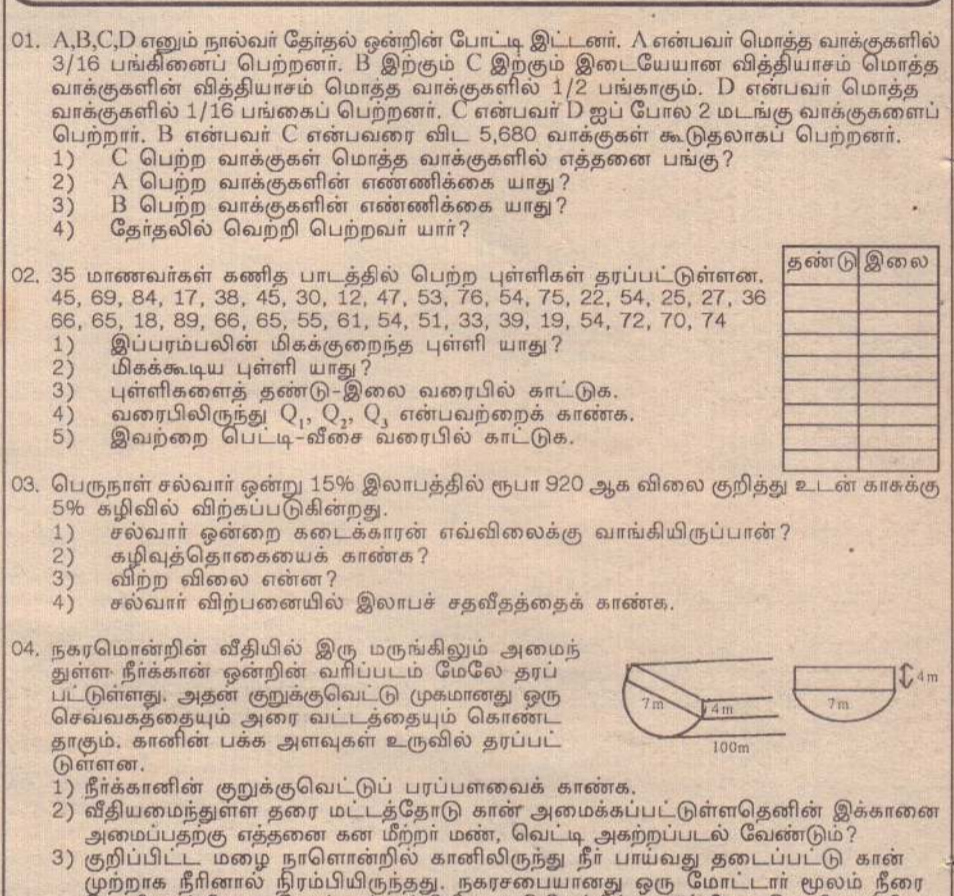 01. A,B,C,D எனும் நால்வர் தேர்தல் ஒன்றின் போட்டி இட்டனர். A என்பவர் மொத்த வாக்குகளில்
3/16 பங்கினைப் பெற்றனர். B இற்கும் C இற்கும் இடையேயான வித்தியாசம் மொத்த
வாக்குகளின் வித்தியாசம் மொத்த வாக்குகளில் 1/2 பங்காகும். D என்பவர் மொத்த
வாக்குகளில் 1/16 பங்கைப் பெற்றனர். C என்பவர் D ஐப் போல 2 மடங்கு வாக்குகளைப்
பெற்றார். B என்பவர் C என்பவரை விட 5,680 வாக்குகள் கூடுதலாகப் பெற்றனர்.
1) C பெற்ற வாக்குகள் மொத்த வாக்குகளில் எத்தனை பங்கு?
2) A பெற்ற வாக்குகளின் எண்ணிக்கை யாது?
3) B பெற்ற வாக்குகளின் எண்ணிக்கை யாது?
4) தேர்தலில் வெற்றி பெற்றவர் யார்?
02. 35 மாணவர்கள் கணித பாடத்தில் பெற்ற புள்ளிகள் தரப்பட்டுள்ளன.
45, 69, 84, 17, 38, 45, 30, 12, 47, 53, 76, 54, 75, 22, 54, 25, 27, 36
66, 65, 18, 89, 66, 65, 55, 61, 54, 51, 33, 39, 19, 54, 72, 70, 74
1) இப்பரம்பலின் மிகக்குறைந்த புள்ளி யாது?
2) மிகக்கூடிய புள்ளி யாது?
3) புள்ளிகளைத் தண்டு-இலை வரைபில் காட்டுக.
4) வரைபிலிருந்து Q₁, Q₂, Q₃ என்பவற்றைக் காண்க.
5) இவற்றை பெட்டி-வீசை வரைபில் காட்டுக.
தண்டு இலை
03. பெருநாள் சல்வார் ஒன்று 15% இலாபத்தில் ரூபா 920 ஆக விலை குறித்து உடன் காசுக்கு
5% கழிவில் விற்கப்படுகின்றது.
1) சல்வார் ஒன்றை கடைக்காரன் எவ்விலைக்கு வாங்கியிருப்பான்?
2) கழிவுத்தொகையைக் காண்க?
3) விற்ற விலை என்ன?
4) சல்வார் விற்பனையில் இலாபச் சதவீதத்தைக் காண்க.
04. நகரமொன்றின் வீதியில் இரு மருங்கிலும் அமைந்
துள்ள நீர்க்கான் ஒன்றின் வரிப்படம் மேலே தரப்
பட்டுள்ளது. அதன் குறுக்குவெட்டு முகமானது ஒரு
செவ்வகத்தையும் அரை வட்டத்தையும் கொண்ட
தாகும். கானின் பக்க அளவுகள் உருவில் தரப்பட்
டுள்ளன.
7m
4m
100m
7m
4m
1) நீர்க்கானின் குறுக்குவெட்டுப் பரப்பளவைக் காண்க.
2) வீதியமைந்துள்ள தரை மட்டத்தோடு கான் அமைக்கப்பட்டுள்ளதெனின் இக்கானை
அமைப்பதற்கு எத்தனை கன மீற்றர் மண், வெட்டி அகற்றப்படல் வேண்டும்?
3) குறிப்பிட்ட மழை நாளொன்றில் கானிலிருந்து நீர் பாய்வது தடைப்பட்டு கான்
முற்றாக நீரினால் நிரம்பியிருந்தது. நகரசபையானது ஒரு மோட்டார் மூலம் நீரை